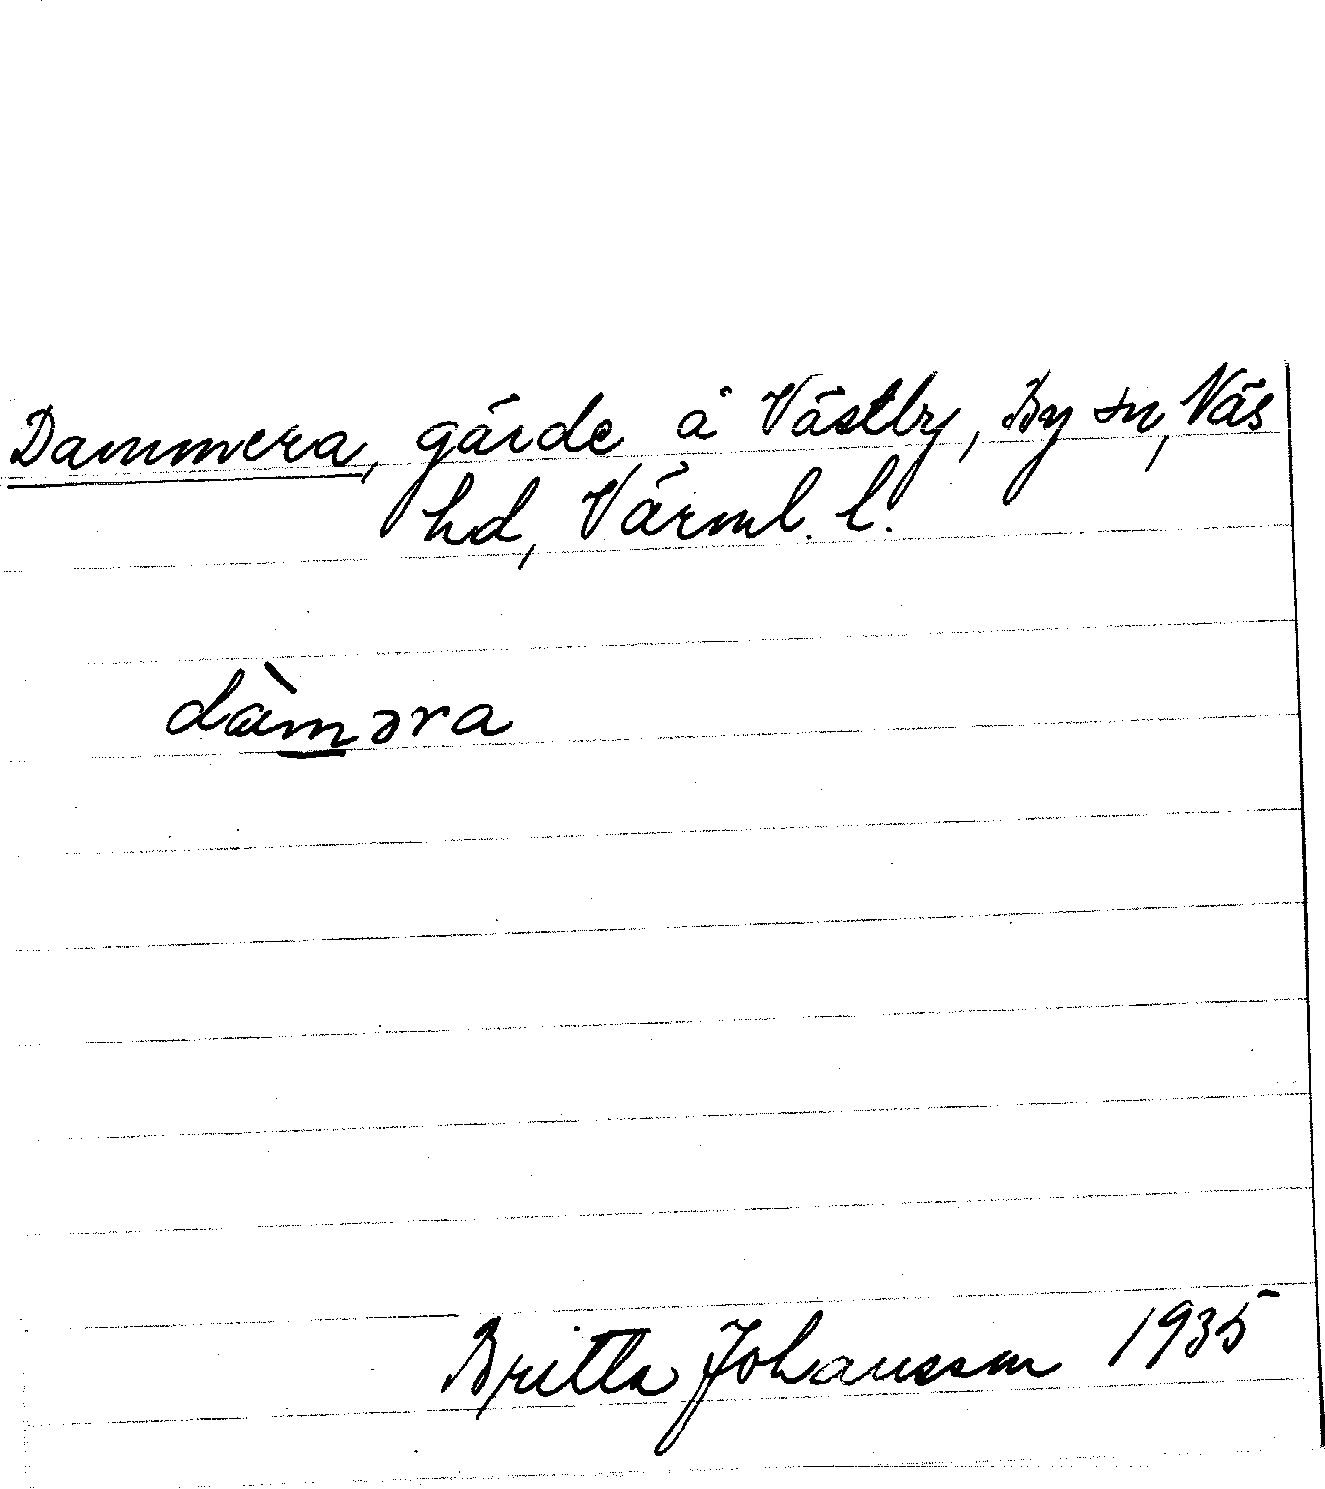 Dammera, gärde å Västby, By sn, Näs
hd, Värml. l.
dàməra
Britta Johansson 1935